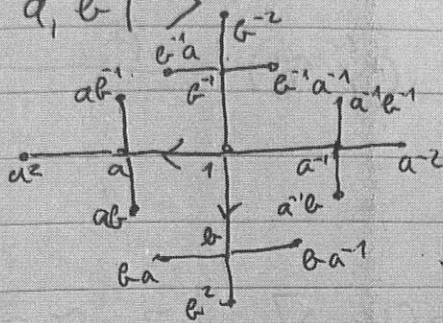 a, b | >
b⁻²
b⁻¹a
b⁻¹ b⁻¹a⁻¹
ab⁻¹ a⁻¹b⁻¹
a² a 1 a⁻¹ a⁻²
ab a⁻¹b
b
ba ba⁻¹
b²